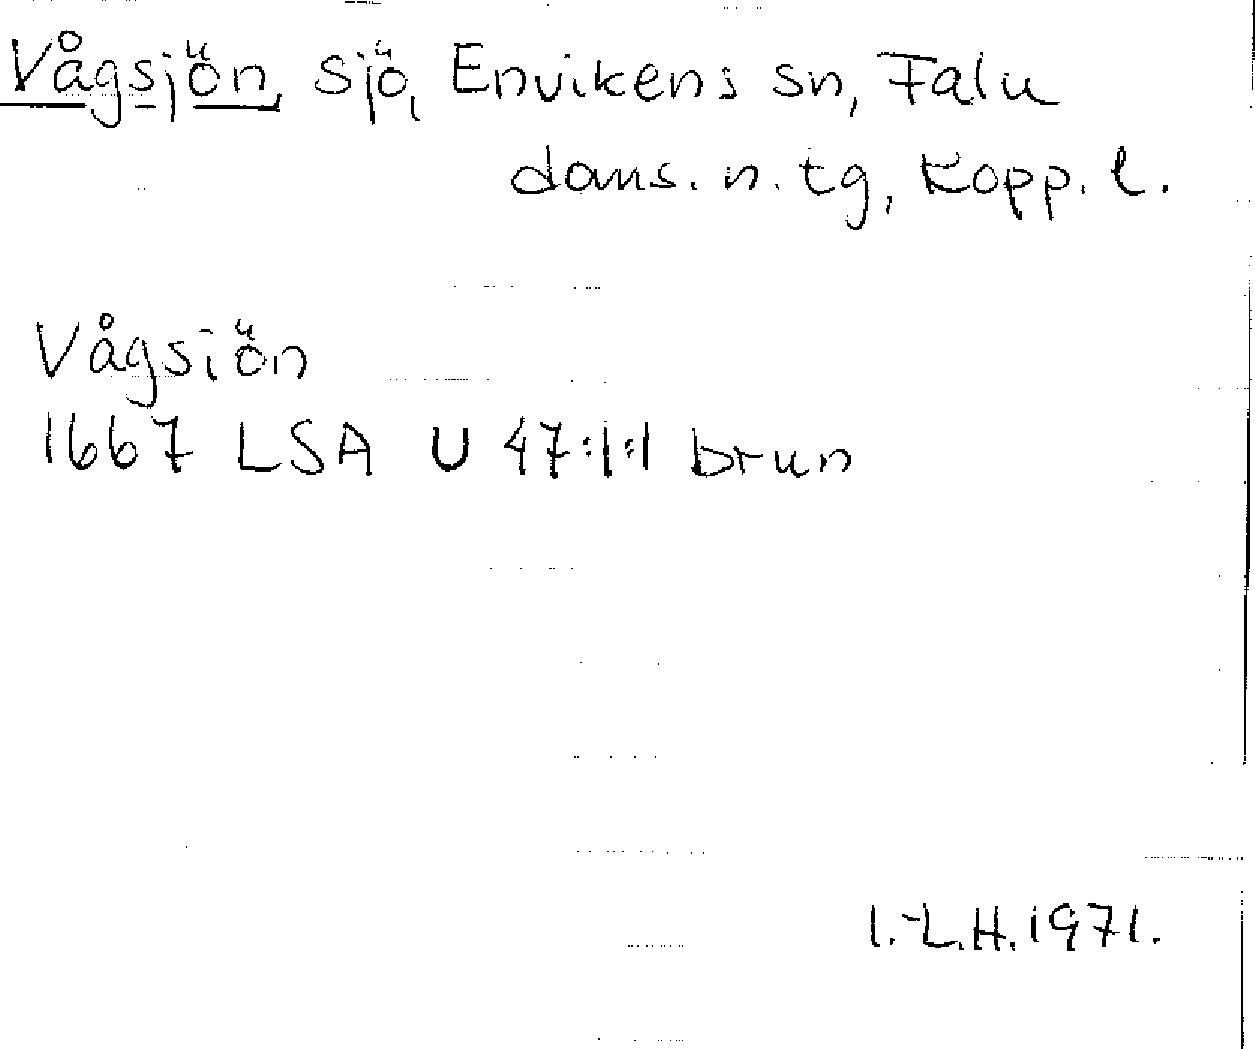 Vågsjön, sjö, Envikens sn, Falu
doms. n. tg, Kopp. l.
Vågsiön
1667 LSA U 47:1:1 brun
I.-L.H. 1971.